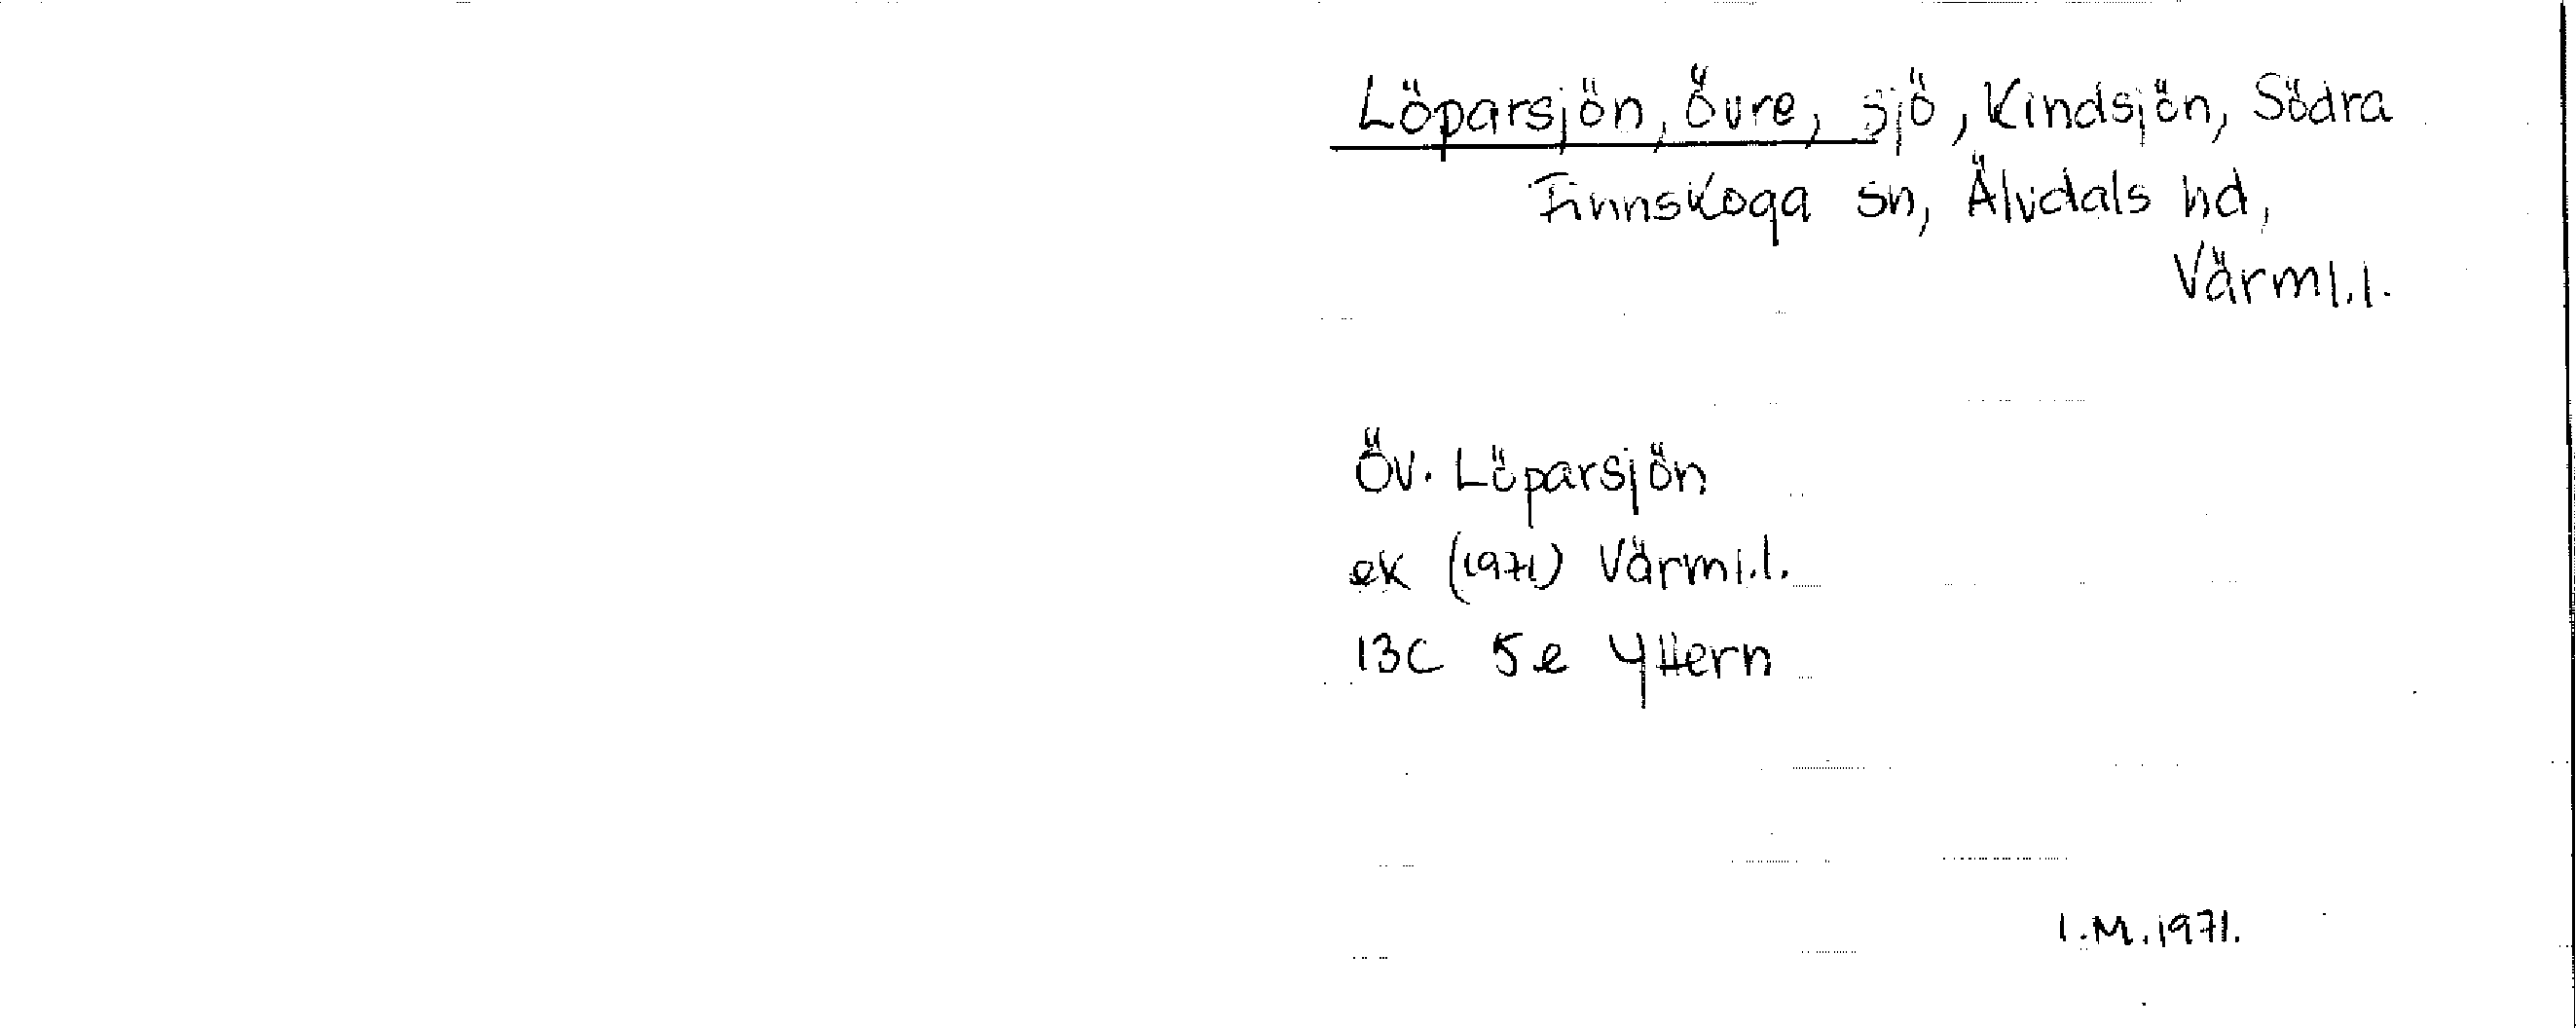 Löparsjön, Övre, sjö, Kindsjön, Södra
Finnskoga sn, Älvdals hd,
Värml.l.
Öv. Löparsjön
ek (1971) Värml.l.
13C 5e Yttern
I.M.1971.